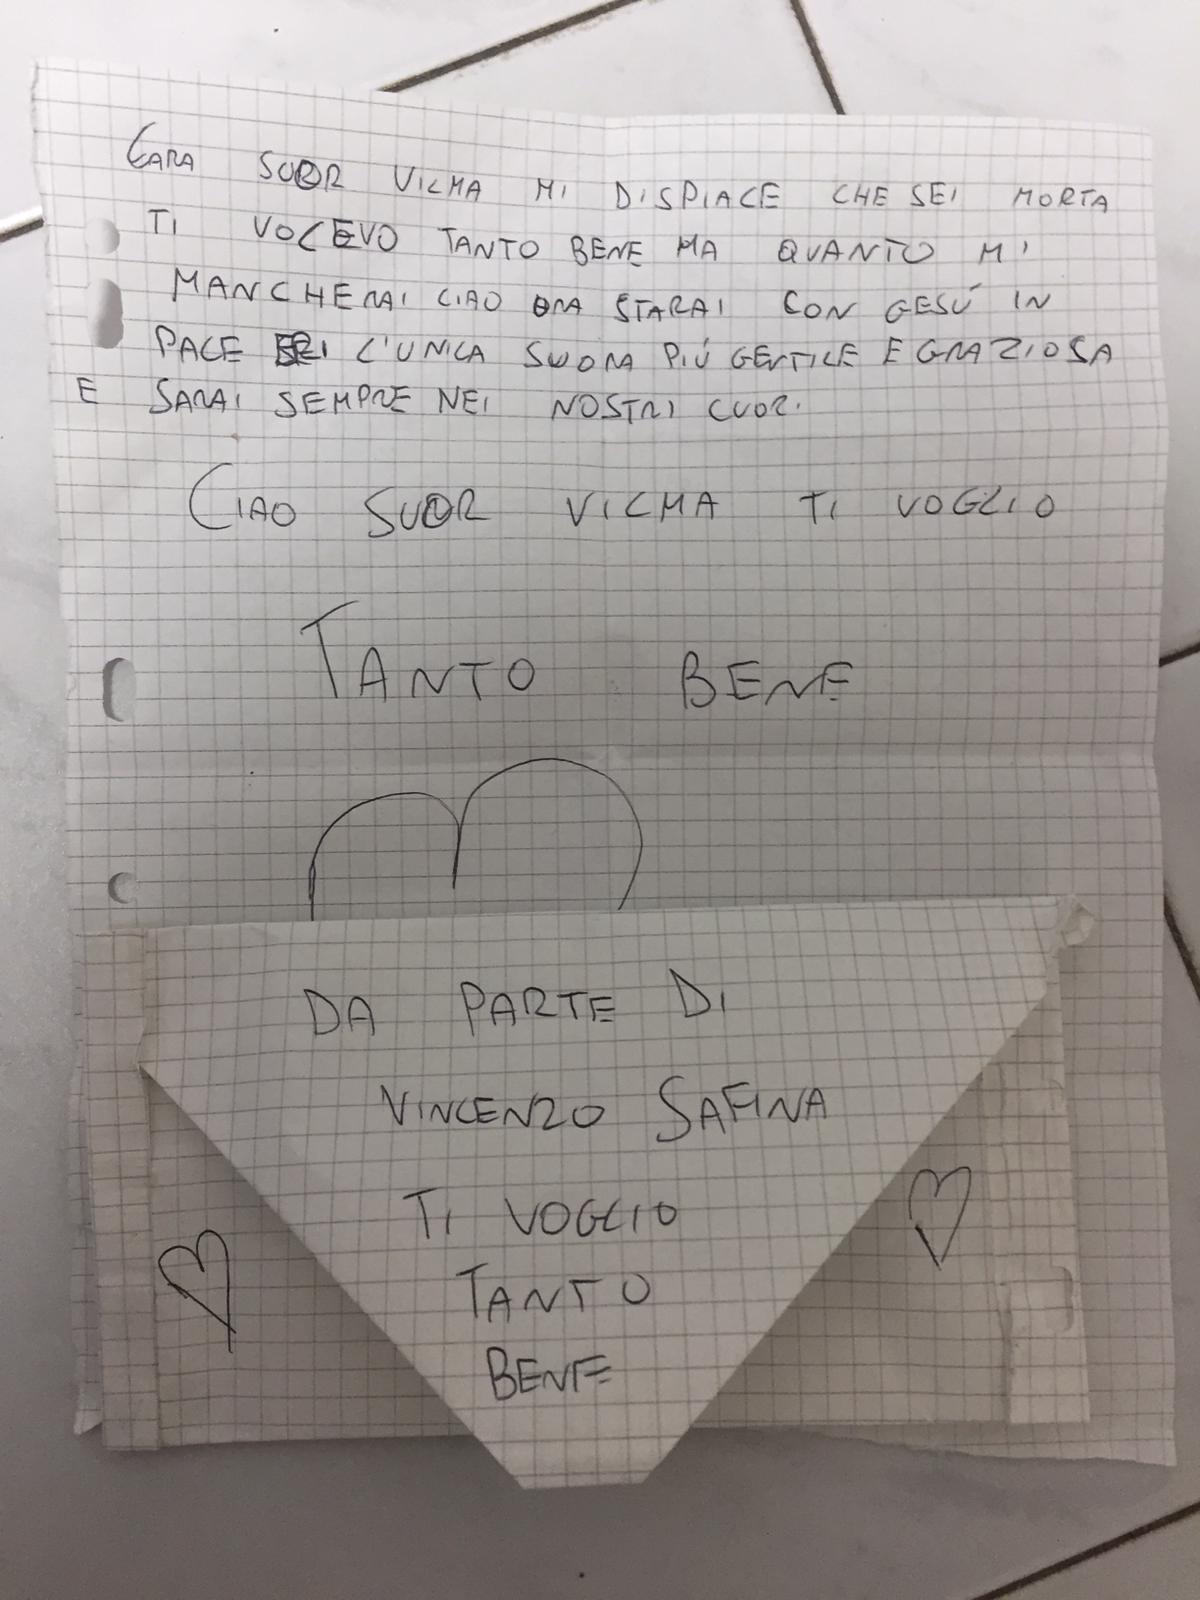 CARA SUOR VILMA MI DISPIACE CHE SEI MORTA
TI VOLEVO TANTO BENE MA QUANTO MI
MANCHERAI CIAO ORA STARAI CON GESÚ IN
PACE SEI L'UNICA SUORA PIÚ GENTILE E GRAZIOSA
E SARAI SEMPRE NEI NOSTRI CUORI
CIAO SUOR VILMA TI VOGLIO
TANTO BENE
DA PARTE DI
VINCENZO SAFINA
TI VOGLIO
TANTO
BENE